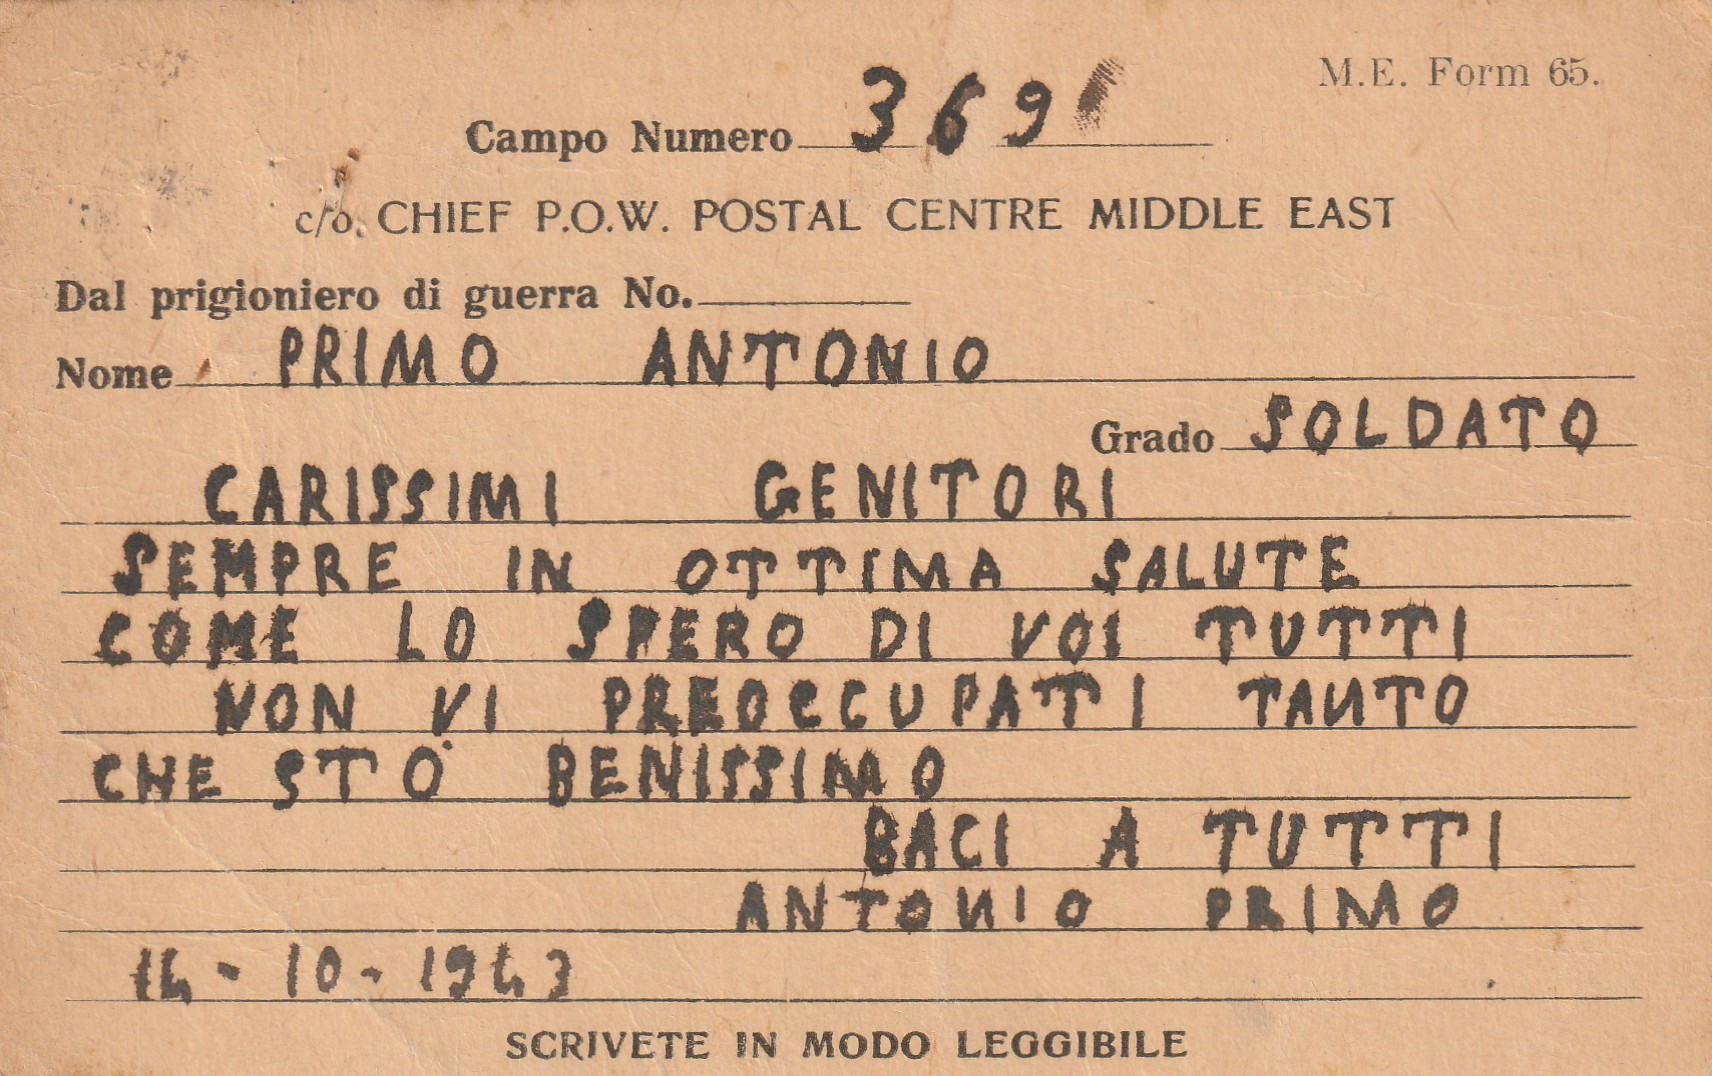 M.E. Form 65.
Campo Numero 369
c/o. CHIEF P.O.W. POSTAL CENTRE MIDDLE EAST
Dal prigioniero di guerra No.
Nome PRIMO ANTONIO
Grado SOLDATO
CARISSIMI GENITORI
SEMPRE IN OTTIMA SALUTE
COME LO SPERO DI VOI TUTTI
NON VI PREOCCUPATI TANTO
CHE STO BENISSIMO
BACI A TUTTI
ANTONIO PRIMO
14-10-1943
SCRIVETE IN MODO LEGGIBILE